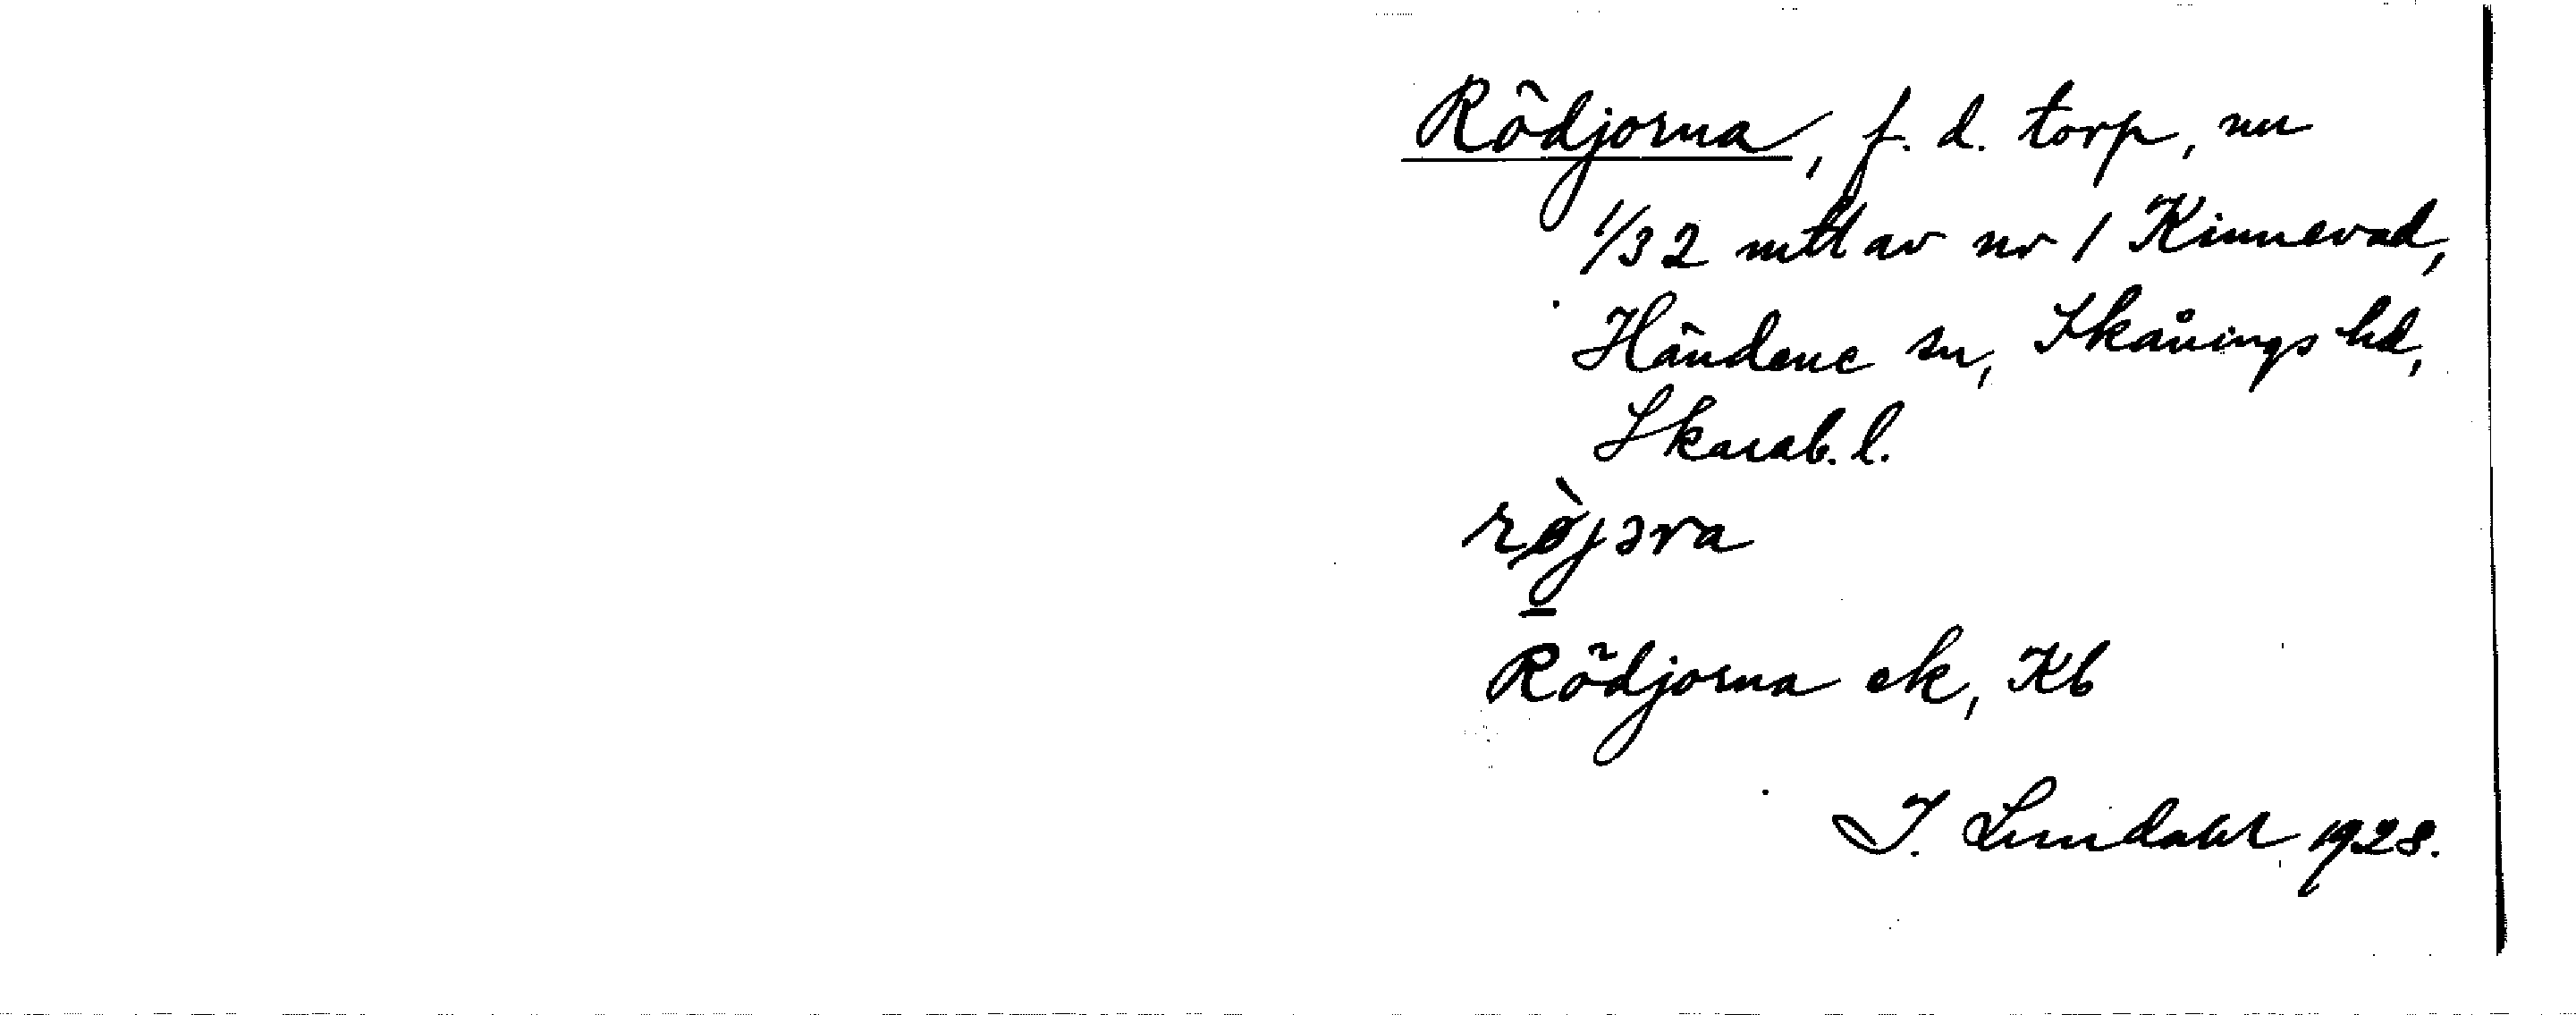 Rödjorna, f. d. torp, nu
1/32 mtl av nr 1 Kinnevad,
Händene sn, Skånings hd,
Skarab. l.
rø̀jɔra
Rödjorna ek, Kb
J. Lindahl 1928.